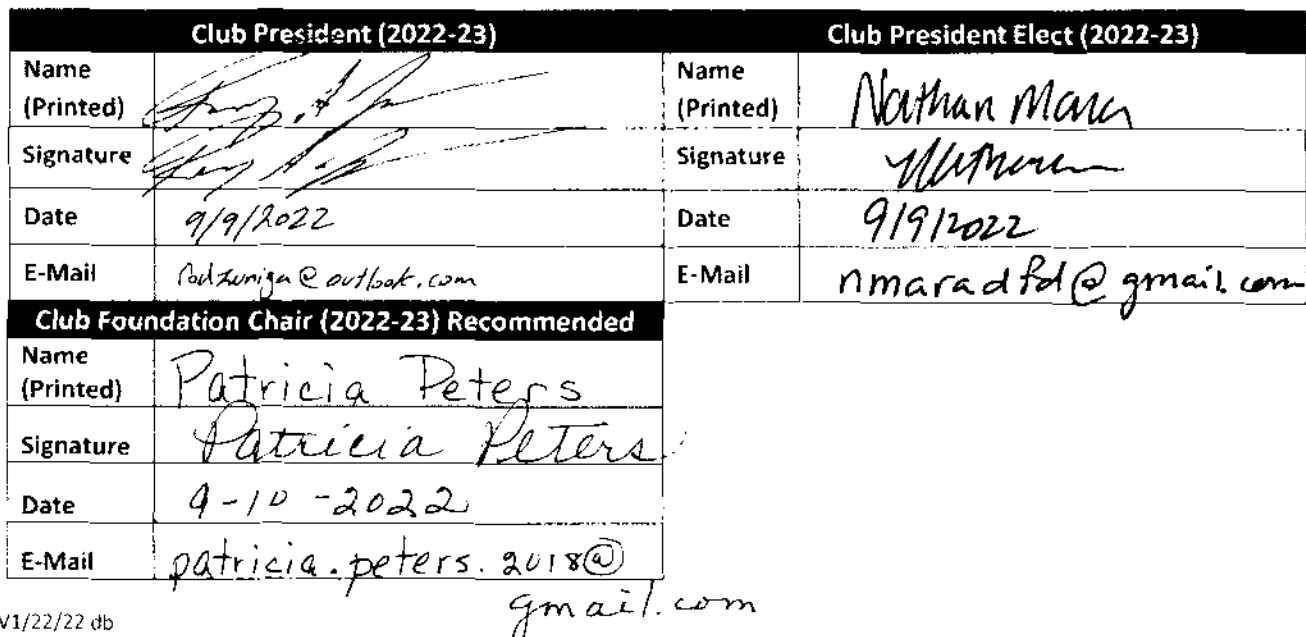 Club President (2022-23)
Name
(Printed)
Signature
Date 9/9/2022
E-Mail rodzuniga@outlook.com
Club President Elect (2022-23)
Name
(Printed) Nathan Mara
Signature
Date 9/9/2022
E-Mail nmaradfd@gmail.com
Club Foundation Chair (2022-23) Recommended
Name
(Printed) Patricia Peters
Signature Patricia Peters
Date 9-10-2022
E-Mail patricia.peters.2018@
gmail.com
V1/22/22 db